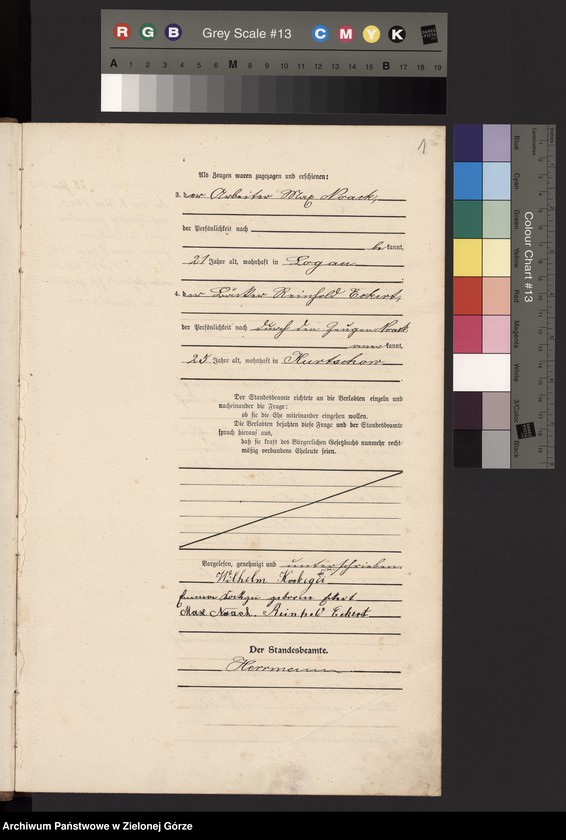 R G B Grey Scale #13 C M Y K
A 1 2 3 4 5 6 M 8 9 10 11 12 13 14 15 B 17 18 19
1
Als Zeugen waren zugezogen und erschienen:
3. der Arbeiter Max Noack,
der Persönlichkeit nach
bekannt,
21 Jahre alt, wohnhaft in Logau.
4. der Bäcker Reinhold Eckert,
der Persönlichkeit nach durch den Zeugen Noack
anerkannt,
25 Jahre alt, wohnhaft in Kurtschow
Der Standesbeamte richtete an die Verlobten einzeln und
nacheinander die Frage:
ob sie die Ehe miteinander eingehen wollen.
Die Verlobten bejahten diese Frage und der Standesbeamte
sprach hierauf aus,
daß sie kraft des Bürgerlichen Gesetzbuchs nunmehr recht-
mäßig verbundene Eheleute seien.
Vorgelesen, genehmigt und unterschrieben
Wilhelm
geboren
Max Noack. Reinhold Eckert
Der Standesbeamte.
Herrmann
Colour Chart #13
Blue
Cyan
Green
Yellow
Red
Magenta
White
3/Color
Black
Centimetres
Inches
Archiwum Państwowe w Zielonej Górze